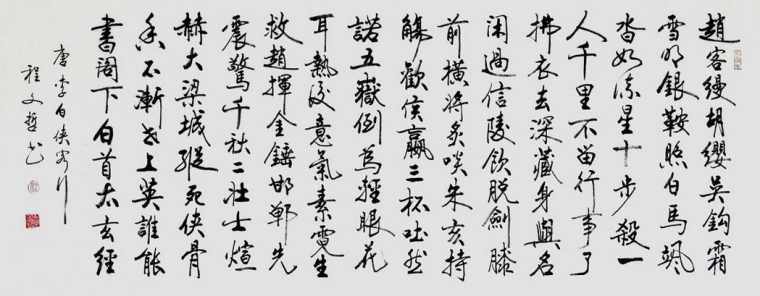 趙客縵胡纓吳鈎霜
雪明銀鞍照白馬颯
沓如流星十步殺一
人千里不留行事了
拂衣去深藏身與名
閑過信陵飲脫劍膝
前橫將炙啖朱亥持
觴勸侯嬴三杯吐然
諾五嶽倒為輕眼花
耳熱後意氣素霓生
救趙揮金錘邯鄲先
震驚千秋二壯士煊
赫大梁城縱死俠骨
香不慚世上英誰能
書閣下白首太玄經
唐李白俠客行
程文哲書